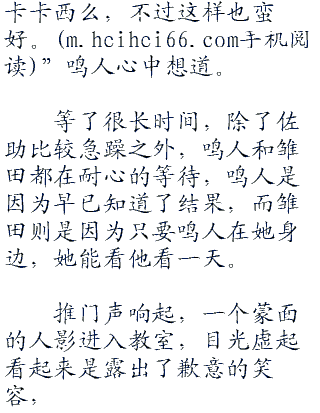 卡卡西么，不过这样也蛮
好。(m.hcihci66.com手机阅
读)”鸣人心中想道。
等了很长时间，除了佐
助比较急躁之外，鸣人和雏
田都在耐心的等待，鸣人是
因为早已知道了结果，而雏
田则是因为只要鸣人在她身
边，她能看他看一天。
推门声响起，一个蒙面
的人影进入教室，目光虚起
看起来是露出了歉意的笑
容；